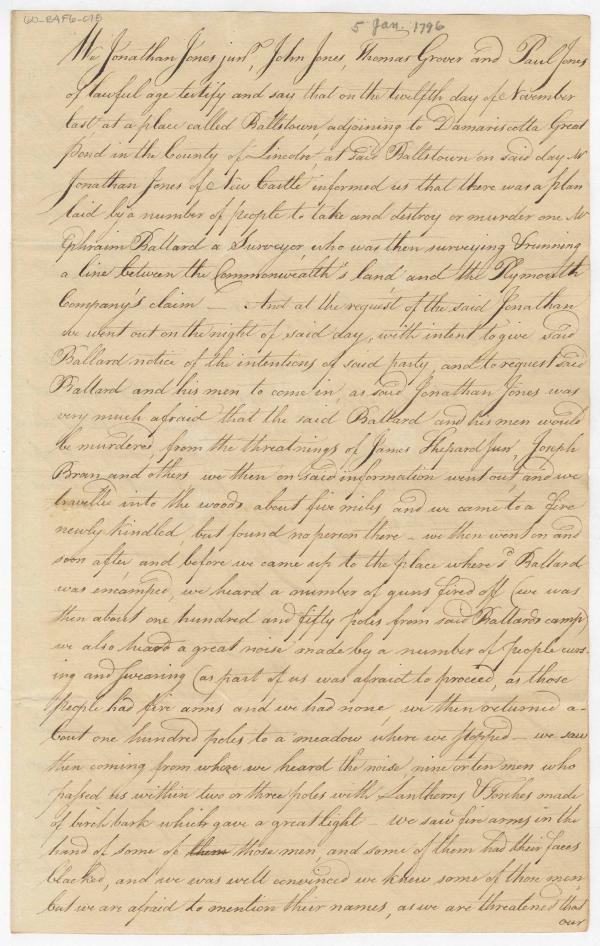 60-BAF6-C15
5 Jan. 1796
We Jonathan Jones junr, John Jones, Thomas Grover and Paul Jones
of lawful age testify and say that on the twelfth day of November
last at a place called Ballstown adjoining to Damariscotta Great
pond in the County of Lincoln, at said Ballstown on said day Mr
Jonathan Jones of New Castle informed us that there was a plan
laid by a number of people to take and destroy or murder one Mr
Ephraim Ballard a Surveyor who was then surveying & running
a line between the Commonwealth's land and the Plymouth
Company's claim — And at the request of the said Jonathan
we went out on the night of said day, with intent to give said
Ballard notice of the intentions of said party, and to request said
Ballard and his men to come in, as said Jonathan Jones was
very much afraid that the said Ballard and his men would
be murdered, from the threatnings of James Shepard Jun, Joseph
Bran and others we then on said information went out and we
travelled into the woods about five miles and we came to a fire
newly kindled but found no person there – we then went on and
soon after, and before we came up to the place where sd Ballard
was encamped, we heard a number of guns fired off (we was
then about one hundred and fifty poles from said Ballards camp)
we also heard a great noise made by a number of people curs-
ing and swearing (as part of us was afraid to proceed, as those
people had fire arms and we had none, we then returned a-
bout one hundred poles to a meadow where we stopped – we saw
then coming from whence we heard the noise, nine or ten men who
passed us within two or three poles with Lanthorns & Torches made
of birch bark which gave a great light – We saw fire arms in the
hand of some of them those men, and some of them had their faces
blacked, and we was well convinced we knew some of those men,
but we are afraid to mention their names, as we are threatened that
our